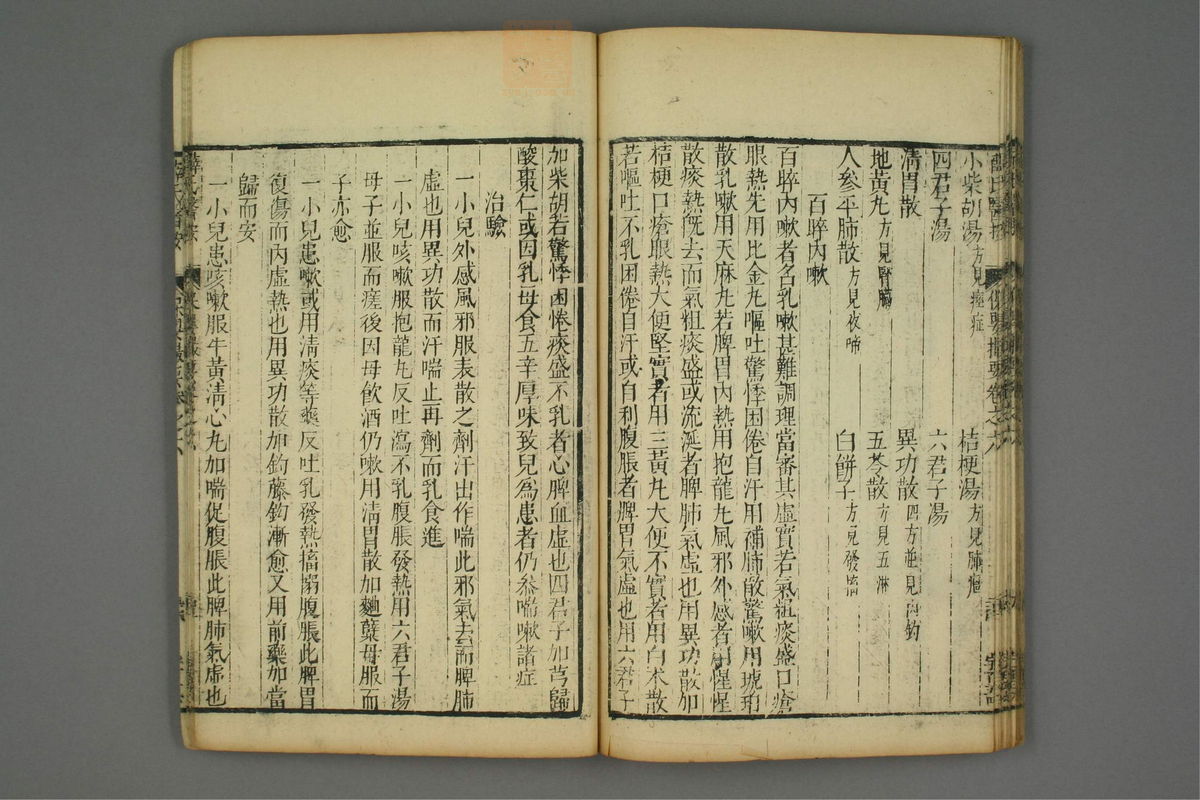 小柴胡湯方見痙症　桔梗湯方見肺癰
四君子湯　六君子湯
清胃散　異功散四方並見
地黃丸方見腎臟　五苓散方見五淋
人參平肺散方見夜啼　白餅子方見發搐
百晬內嗽
百晬內嗽者名乳嗽甚難調理當審其虛實若氣粗痰盛口瘡
眼熱先用比金丸嘔吐驚悸困倦自汗用補肺散驚嗽用琥珀
散乳嗽用天麻丸若脾胃內熱用抱龍丸風邪外感者用惺惺
散痰熱旣去而氣粗痰盛或流涎者脾肺氣虛也用異功散加
桔梗口瘡眼熱大便堅實者用三黃丸大便不實者用白朮散
若嘔吐不乳困倦自汗或自利腹脹者脾胃氣虛也用六君子
加柴胡若驚悸困倦痰盛不乳者心脾血虛也四君子加芎歸
酸棗仁或因乳母食五辛厚味致兒爲患者仍參喘嗽諸症
治驗
一小兒外感風邪服表散之劑汗出作喘此邪氣去而脾肺
虛也用異功散而汗喘止再劑而乳食進
一小兒咳嗽服抱龍丸反吐瀉不乳腹脹發熱用六君子湯
母子並服而瘥後因母飲酒仍嗽用清胃散加麯蘗母服而
子亦愈
一小兒患嗽或用清痰等藥反吐乳發熱搐搦腹脹此脾胃
復傷而內虛熱也用異功散加釣藤鈎漸愈又用前藥加當
歸而安
一小兒患咳嗽服牛黃清心丸加喘促腹脹此脾肺氣虛也